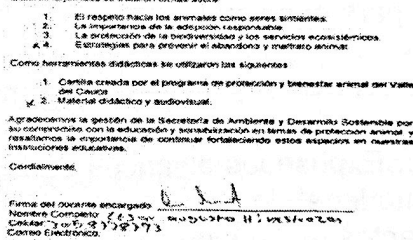 1. El respeto hacia los animales como seres sintientes.
2. La importancia de la adopción responsable.
3. La protección de la biodiversidad y los servicios ecosistémicos.
4. Estrategias para prevenir el abandono y maltrato animal.
Como herramientas didácticas se utilizaron las siguientes
1. Cartilla creada por el programa de protección y bienestar animal del Valle
del Cauca
2. Material didáctico y audiovisual.
Agradecemos la gestión de la Secretaría de Ambiente y Desarrollo Sostenible por
su compromiso con la educación y sensibilización en temas de protección animal y
resaltamos la importancia de continuar fortaleciendo estos espacios en nuestras
instituciones educativas.
Cordialmente,
Firma del docente encargado
Nombre Completo: augusto
Celular:
Correo Electrónico: